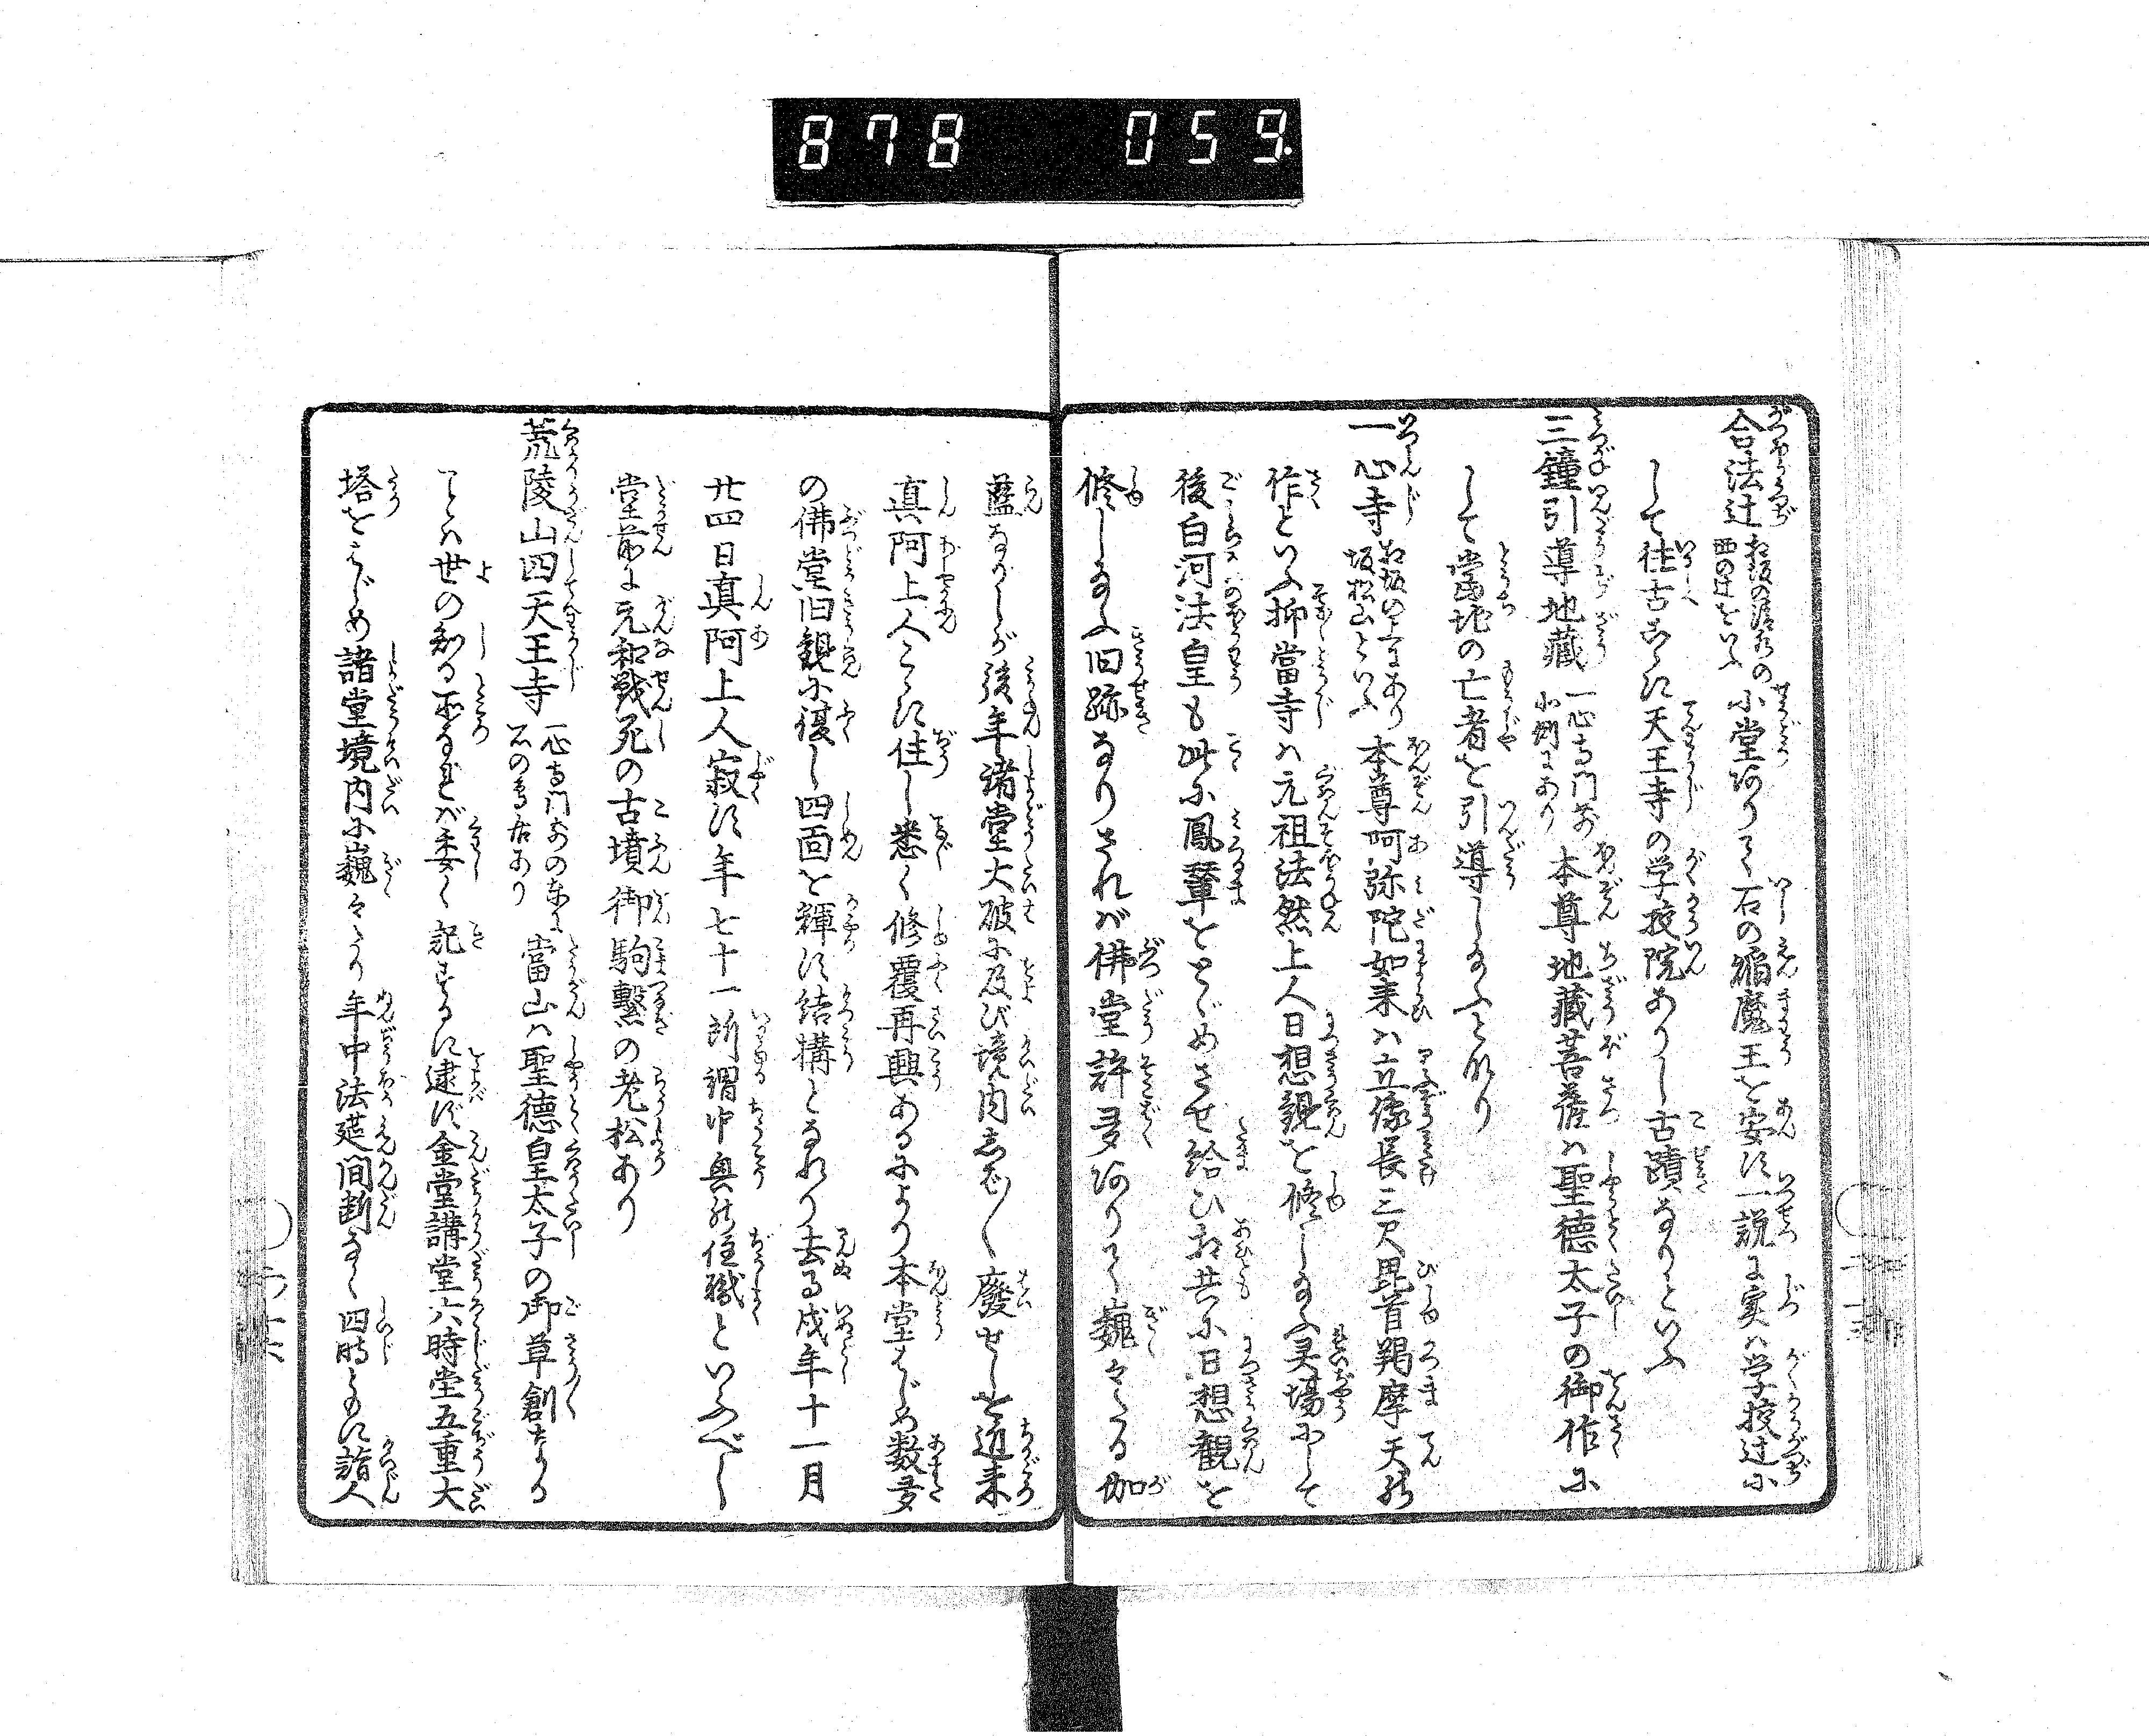 878 059
合法辻 相坂の清水の西の辻をいふ 小堂ありて石の焔魔王を安ず一説に実は学校辻に
して往古こゝに天王寺の学校院ありし古蹟なりといふ
三鐘引導地蔵 一心寺門前小堂にあり 本尊地蔵菩薩は聖徳太子の御作に
して當地の亡者を引導し給ふとなり
一心寺 相坂の上にあり坂松山といふ 本尊阿弥陀如来は立像長三尺毘首羯摩天の
作といふ抑當寺は元祖法然上人日想観を修し給ふ灵場にして
後白河法皇も此に鳳輦をとゞめさせ給ひ相共に日想観を
修し給ふ旧跡なりされば佛堂許多ありて巍々たる伽
藍なりしが後年諸堂大破に及び境内まで〳〵廢せしを近来
真阿上人こゝに住し悉く修覆再興あるにより本堂はじめ数多
の佛堂旧観に復し四面を輝す結構となれり去る戌年十一月
廿四日真阿上人寂す年七十一所謂中興の住職といふべし
堂前に元和戦死の古墳御駒繋の老松あり
荒陵山四天王寺 一心寺門前の東に石の鳥居あり 當山は聖徳皇太子の御草創なる
ことは世の知る所なれば委く記するに逮ばず金堂講堂六時堂五重大
塔をはじめ諸堂境内に巍々たり年中法莚間断なく四時ともに詣人